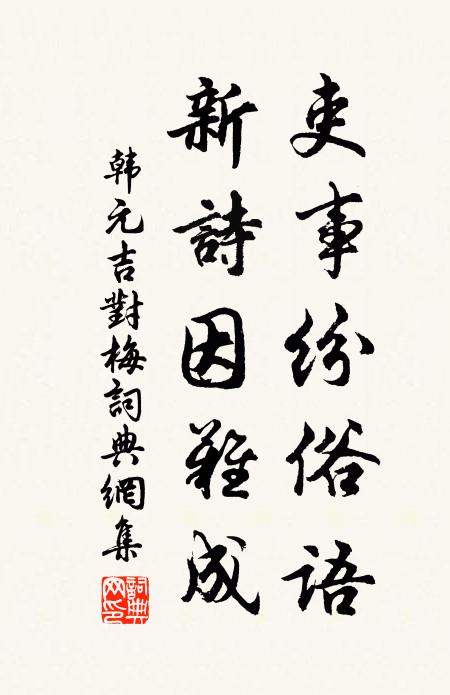 吏事紛俗語
新詩因難成
韩元吉對梅詞典網集
詞典网印